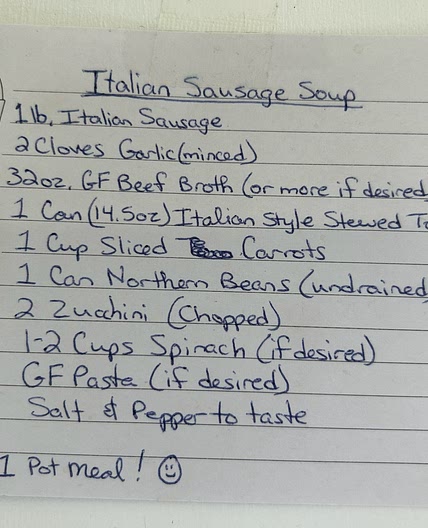 Italian Sausage Soup
1 lb. Italian Sausage
2 Cloves Garlic (minced)
32oz. GF Beef Broth (or more if desired
1 Can (14.5oz) Italian Style Stewed
1 Cup Sliced Carrots
1 Can Northern Beans (undrained
2 Zucchini (Chopped)
1-2 Cups Spinach (if desired)
GF Pasta (if desired)
Salt & Pepper to taste
1 Pot meal! ☺